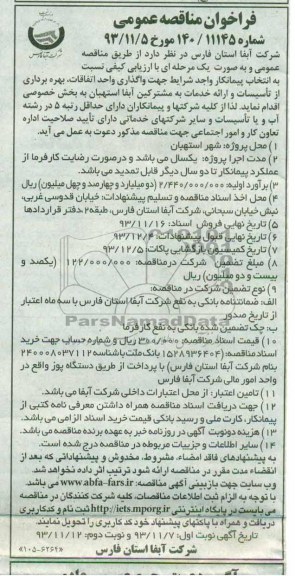 فراخوان مناقصه عمومی
شماره ۱۱۱۴۵ / ۱۴۰ مورخ ۹۳/۱۱/۵
شرکت آبفا استان فارس در نظر دارد از طریق مناقصه
عمومی و به صورت یک مرحله ای با ارزیابی کیفی نسبت
به انتخاب پیمانکار واجد شرایط جهت واگذاری واحد اتفاقات، بهره برداری
از تأسیسات و ارائه خدمات به مشترکین آبفا استهبان به بخش خصوصی
اقدام نماید. لذا از کلیه شرکتها و پیمانکاران دارای حداقل رتبه ۵ در رشته
آب و یا تأسیسات و سایر شرکتهای خدماتی دارای تأیید صلاحیت اداره
تعاون کار و امور اجتماعی جهت مناقصه مذکور دعوت به عمل می آید.
۱) محل پروژه: شهر استهبان
۲) مدت اجرا پروژه: یکسال می باشد و درصورت رضایت کارفرما از
عملکرد پیمانکار تا دو سال دیگر قابل تمدید می باشد.
۳) برآورد اولیه: ۲/۴۴۰/۰۰۰/۰۰۰ (دو میلیارد و چهارصد و چهل میلیون) ریال
۴) محل اخذ اسناد مناقصه و تسلیم پیشنهادات: خیابان قدوسی غربی،
نبش خیابان سبحانی، شرکت آبفا استان فارس، طبقه۲، دفتر قراردادها
۵) تاریخ نهایی فروش اسناد: ۹۳/۱۱/۱۶
۶) تاریخ نهایی قبول پیشنهادات: ۹۳/۱۲/۴
۷) تاریخ کمیسیون بازگشایی پاکات: ۹۳/۱۲/۵
۸) مبلغ تضمین شرکت درمناقصه: ۱۲۲/۰۰۰/۰۰۰ (یکصد و
بیست و دو میلیون) ریال
۹) نوع تضمین شرکت در مناقصه:
الف: ضمانتنامه بانکی به نفع شرکت آبفا استان فارس با سه ماه اعتبار از
تاریخ صدور
ب: چک تضمین شده بانکی به نفع کارفرما
۱۰) قیمت اسناد مناقصه: ۳۰۰/۰۰۰ ریال و شماره حساب جهت خرید
اسناد مناقصه: (۱۵۲۸۹۳۶۴۰۴ بانک ملت باشناسه ۲۴۰۰۰۸۰۳۷۱۱۲
بنام شرکت آبفا استان فارس) با پرداخت از طریق دستگاه پوز واقع در
واحد امور مالی شرکت آبفا فارس
۱۱) تامین اعتبار: از محل اعتبارات داخلی شرکت آبفا می باشد.
۱۲) جهت دریافت اسناد مناقصه همراه داشتن معرفی نامه کتبی از
پیمانکار، کارت ملی و رسید بانکی قیمت خرید اسناد الزامی می باشد.
۱۳) هزینه دونوبت آگهی در روزنامه خبر به عهده برنده مناقصه می باشد.
۱۴) سایر اطلاعات و جزییات مربوطه در مناقصه درج شده است.
به پیشنهادهای فاقد امضاء، مشروط، مخدوش و پیشنهاداتی که بعد از
انقضاء مدت مقرر در مناقصه ارائه شود ترتیب اثر داده نخواهد شد.
وب سایت جهت بازبینی آگهی مناقصه: www.abfa-fars.ir می باشد.
با توجه به الزام ثبت اطلاعات مناقصات، کلیه شرکت کنندگان در مناقصه
می بایست در پایگاه اینترنتی http://iets.mporg.ir ثبت نام و کدکاربری
دریافت و همراه با پاکتهای پیشنهاد خود کد کاربری را تحویل نمایند.
تاریخ آگهی نوبت اول: ۹۳/۱۱/۷ و نوبت دوم: ۹۳/۱۱/۱۲
شرکت آبفا استان فارس
«۱۰۵-۶۲۶۹»
ParsNamadData